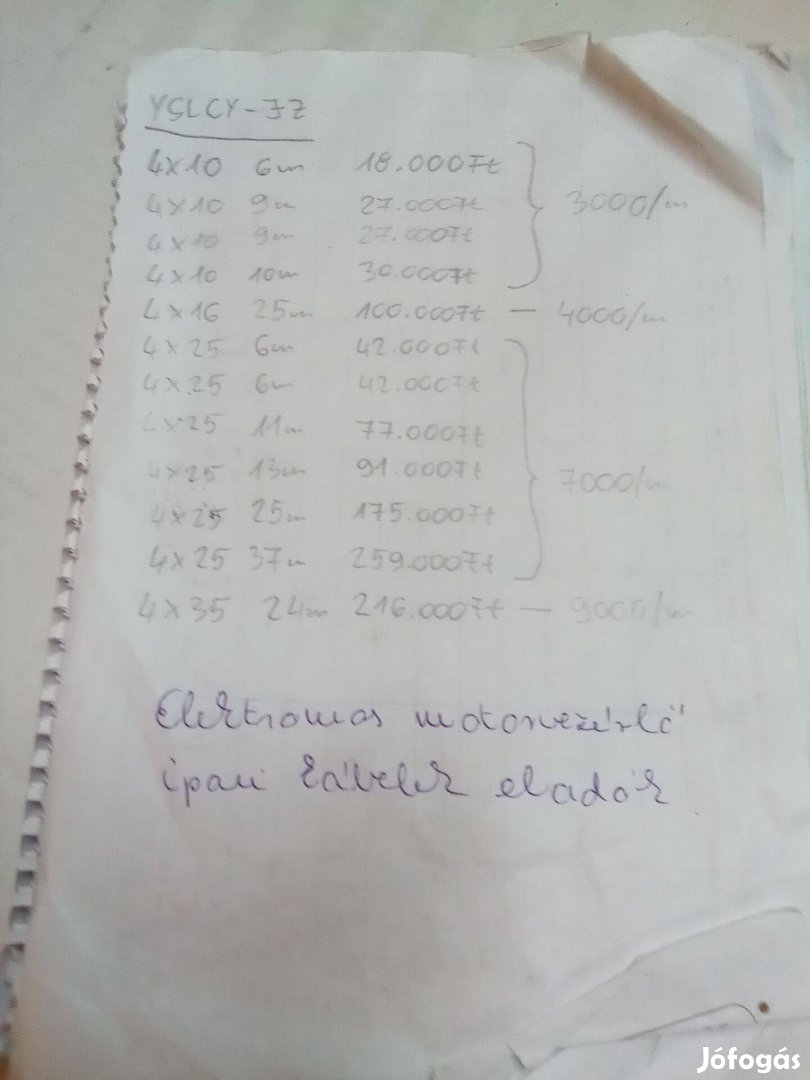 YSLCY-JZ
4x10 6m 18.000Ft
4x10 9m 27.000Ft
4x10 9m 27.000Ft
4x10 10m 30.000Ft
3000/m
4x16 25m 100.000Ft — 4000/m
4x25 6m 42.000Ft
4x25 6m 42.000Ft
4x25 11m 77.000Ft
4x25 13m 91.000Ft
4x25 25m 175.000Ft
4x25 37m 259.000Ft
7000/m
4x35 24m 216.000Ft — 9000/m
Elektromos motorvezérlő
ipari kábelek eladók
Jófogás